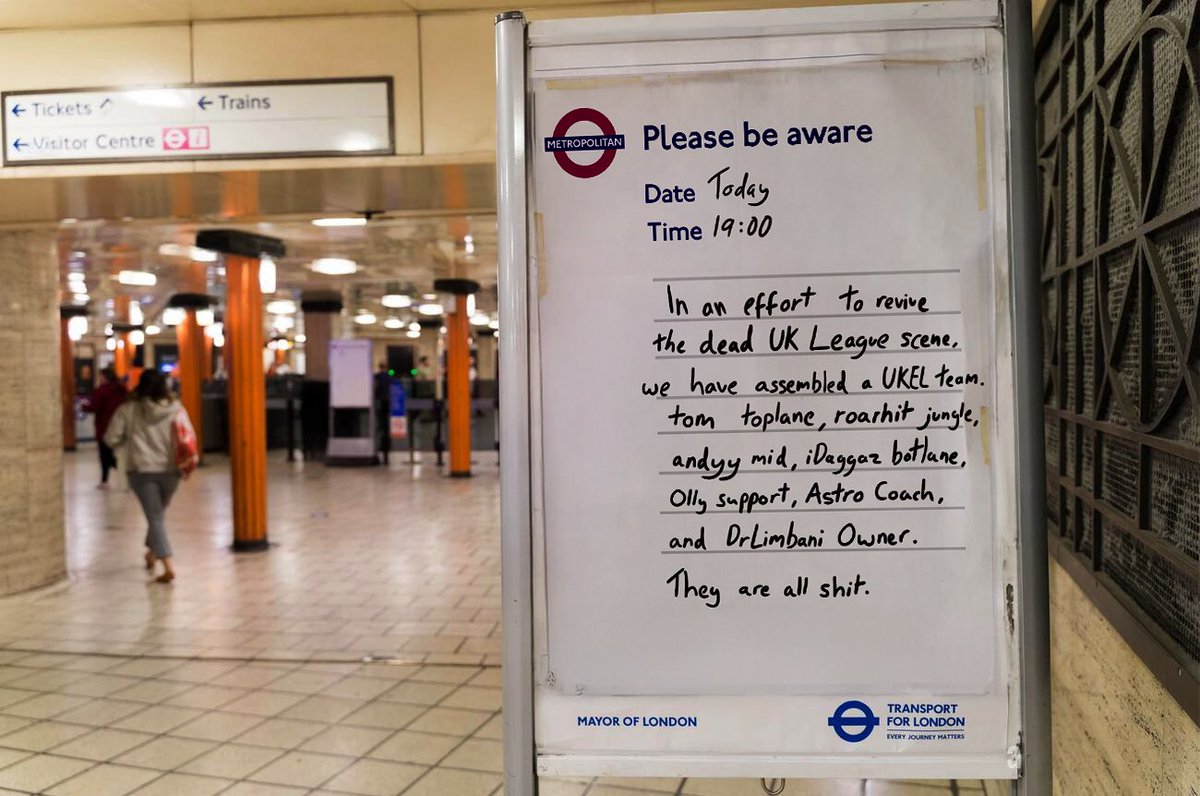 ← Tickets ← Trains
← Visitor Centre i
METROPOLITAN
Please be aware
Date Today
Time 19:00
In an effort to revive
the dead UK League scene,
we have assembled a UKEL team.
tom toplane, roarhit jungle,
andyy mid, iDaggaz botlane,
Olly support, Astro Coach,
and DrLimbani Owner.
They are all shit.
MAYOR OF LONDON
TRANSPORT
FOR LONDON
EVERY JOURNEY MATTERS